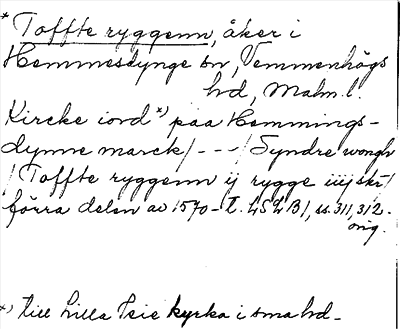 * Toffte ryggenn, åker i
Hemmesdynge sn, Vemmenhögs
hd, Malm. l.
Kircke iord *) paa Hemmings-
dynne marck /---/ Syndre wongh
/ Toffte ryggenn ij rygge iiij skr/
förra delen av 1570-t. LSLB1, ss. 311, 312.
orig.
*) till Lilla Isie kyrka i sma hd.